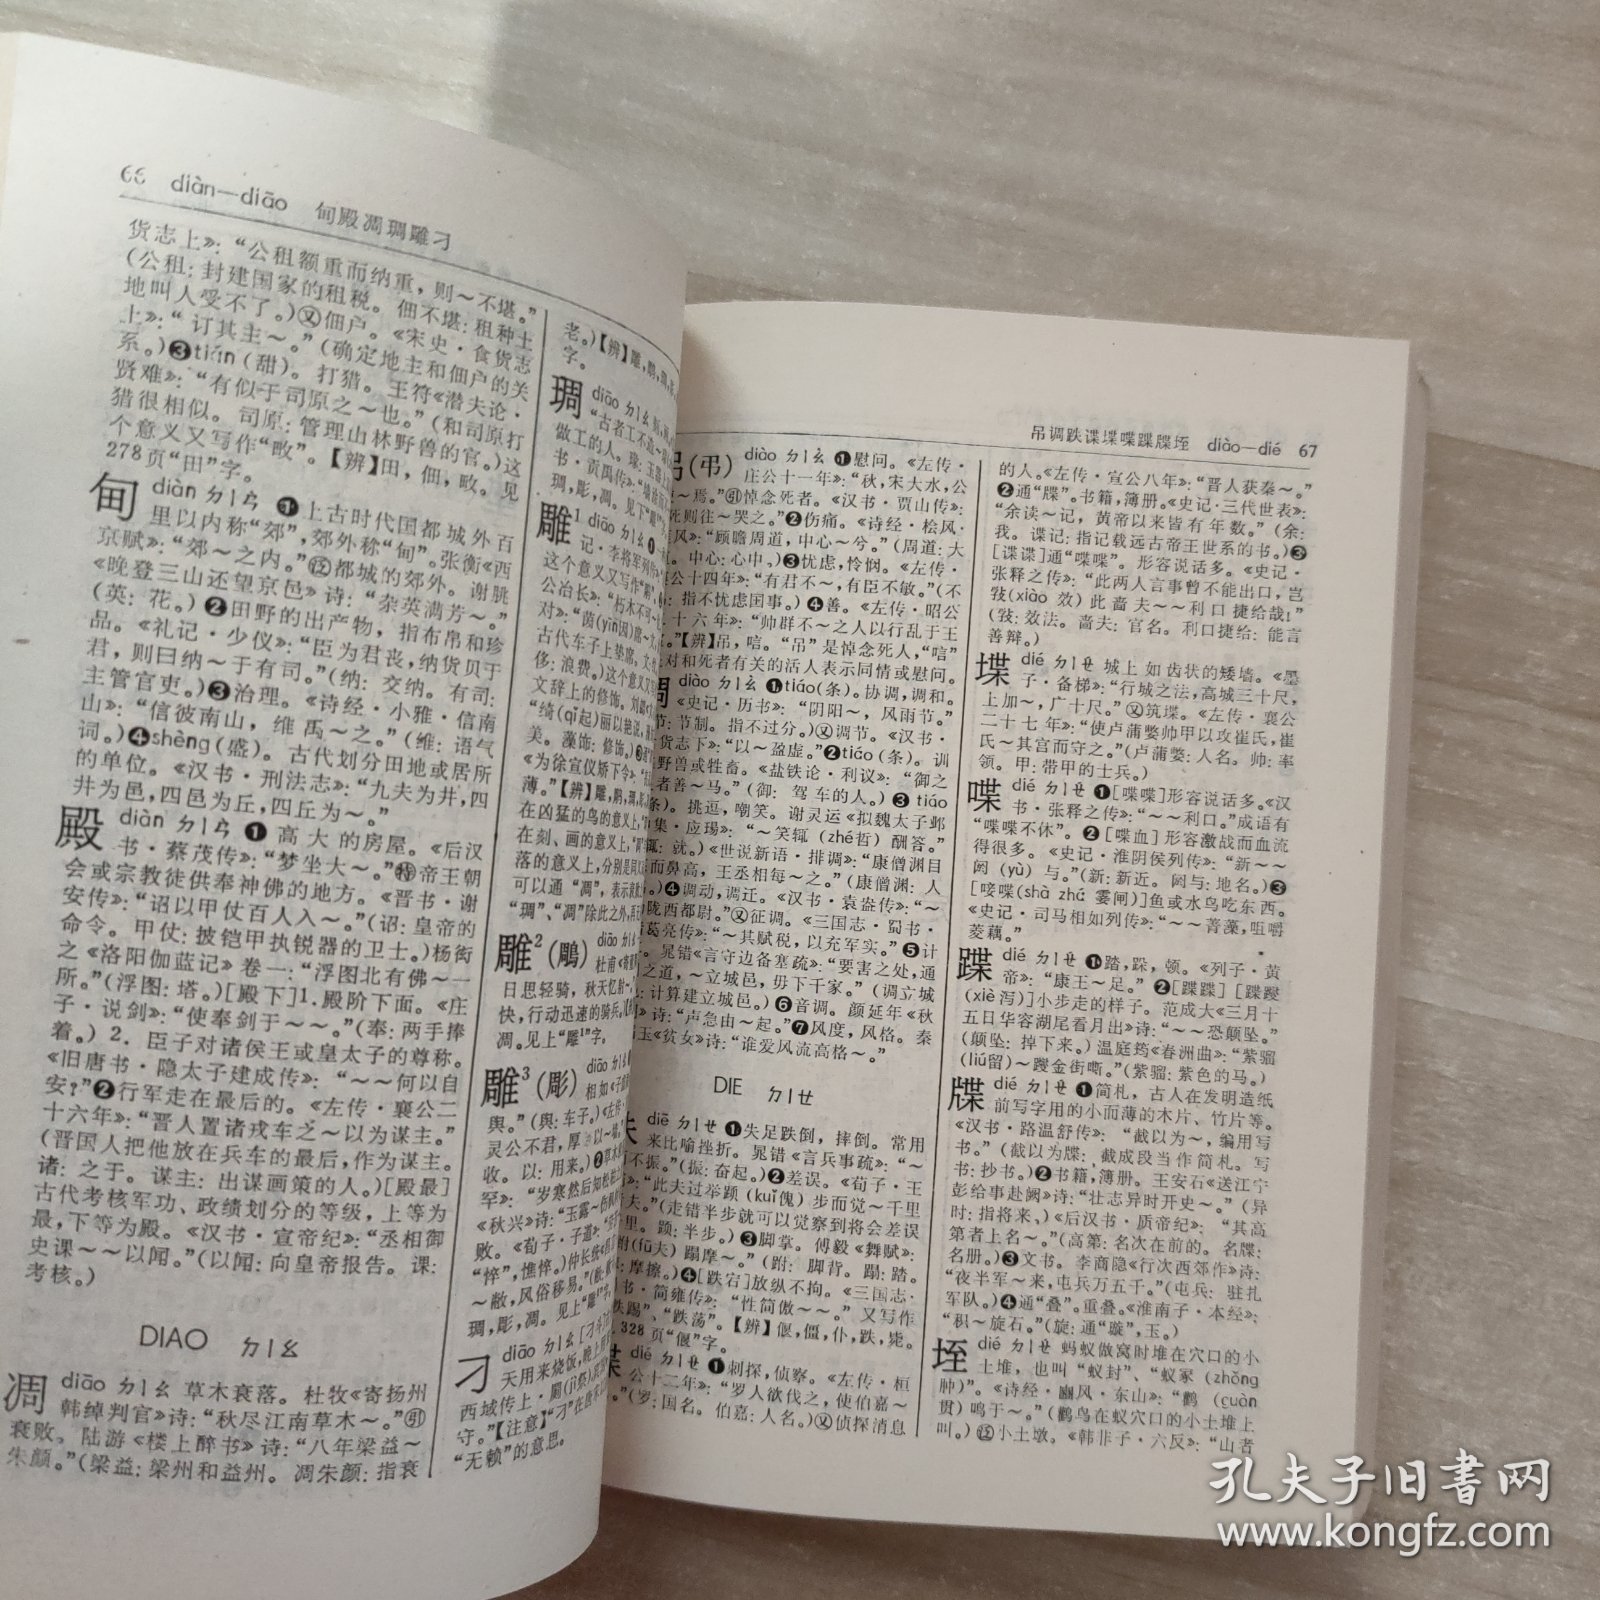 66 diàn—diāo 甸殿凋琱雕刁
货志上》：“公租额重而纳重，则～不堪。”
(公租：封建国家的租税。佃不堪：租种土
地叫人受不了。)㊣佃户。《宋史·食货志
上》：“订其主～。”(确定地主和佃户的关
系。)❸tián(甜)。打猎。王符《潜夫论·
贤难》：“有似于司原之～也。”(和司原打
猎很相似。司原：管理山林野兽的官。)这
个意义又写作“畋”。【辨】田，佃，畋。见
278页“田”字。
甸 diàn ㄉㄧㄢ ❶上古时代国都城外百
里以内称“郊”，郊外称“甸”。张衡《西
京赋》：“郊～之内。”㊣都城的郊外。谢朓
《晚登三山还望京邑》诗：“杂英满芳～。”
(英：花。)❷田野的出产物，指布帛和珍
品。《礼记·少仪》：“臣为君丧，纳货贝于
君，则曰纳～于有司。”(纳：交纳。有司：
主管官吏。)❸治理。《诗经·小雅·信南
山》：“信彼南山，维禹～之。”(维：语气
词。)❹shèng(盛)。古代划分田地或居所
的单位。《汉书·刑法志》：“九夫为井，四
井为邑，四邑为丘，四丘为～。”
殿 diàn ㄉㄧㄢ ❶高大的房屋。《后汉
书·蔡茂传》：“梦坐大～。”㊕帝王朝
会或宗教徒供奉神佛的地方。《晋书·谢
安传》：“诏以甲仗百人入～。”(诏：皇帝的
命令。甲仗：披铠甲执锐器的卫士。)杨衒
之《洛阳伽蓝记》卷一：“浮图北有佛～一
所。”(浮图：塔。)[殿下]1.殿阶下面。《庄
子·说剑》：“使奉剑于～～。”(奉：两手捧
着。) 2.臣子对诸侯王或皇太子的尊称。
《旧唐书·隐太子建成传》：“～～何以自
安？”❷行军走在最后的。《左传·襄公二
十六年》：“晋人置诸戎车之～以为谋主。”
(晋国人把他放在兵车的最后，作为谋主。
诸：之于。谋主：出谋画策的人。)[殿最]
古代考核军功、政绩划分的等级，上等为
最，下等为殿。《汉书·宣帝纪》：“丞相御
史课～～以闻。”(以闻：向皇帝报告。课：
考核。)
DIAO ㄉㄧㄠ
凋 diāo ㄉㄧㄠ 草木衰落。杜牧《寄扬州
韩绰判官》诗：“秋尽江南草木～。”㊁
衰败。陆游《楼上醉书》诗：“八年梁益～
朱颜。”(梁益：梁州和益州。凋朱颜：指衰
老。)【辨】雕，鹏，琱，
字。
琱 diāo ㄉㄧㄠ
“古者工不造
做工的人。
书·贡禹传》：
琱，彫，凋。见下“雕”
雕¹ diāo ㄉㄧㄠ ❶
记·李将军列传》
这个意义又写作“鵰”
公冶长》：“朽木不可～
对》：“茵(yīn因)席～文
古代车子上垫席。
侈：浪费。)这个意义又写
文辞上的修饰。
“绮(qǐ起)丽以艳说，
美。藻饰：修饰。)
《为徐宣仪矫下令》：
薄。”【辨】雕，鹏，琱，
在凶猛的鸟的意义上，
在刻、画的意义上，
落的意义上，
可以通“凋”，
“琱”、“凋”除此之外，
雕²(鵰) diāo ㄉㄧㄠ
杜甫
日思轻骑，秋天忆射～
快，行动迅速的骑兵。)
凋。见上“雕¹”字。
雕³(彫) diāo ㄉㄧㄠ
舆。”(舆：车子。)《左传·
灵公不君，厚～以～墙。
收。以：用来。)❷
罕》：“岁寒然后知松柏
《秋兴》诗：“玉露～伤
败。《荀子·子道》：
“悴”，憔悴。)仲长统
～敝，风俗移易。”
琱，彫，凋。见上“雕¹”字。
刁 diāo ㄉㄧㄠ [刁斗]
天用来烧饭，晚上
西域传上·罽(jì祭)宾
守。”【注意】“刁”在
“无赖”的意思。
吊调跌谍堞喋蹀牒垤 diào—dié 67
吊(弔) diào ㄉㄧㄠ ❶慰问。《左传·
庄公十一年》：“秋，宋大水，公
～焉。”㊁悼念死者。《汉书·贾山传》：
死则往～哭之。”❷伤痛。《诗经·桧风·
风》：“顾瞻周道，中心～兮。”(周道：大
中心：心中。)❸忧虑，怜悯。《左传·
公十四年》：“有君不～，有臣不敏。”(不
：指不忧虑国事。)❹善。《左传·昭公
十六年》：“帅群不～之人以行乱于王
。”【辨】吊，唁。“吊”是悼念死人，“唁”
对和死者有关的活人表示同情或慰问。
调 diào ㄉㄧㄠ ❶tiáo(条)。协调，调和。
《史记·历书》：“阴阳～，风雨节。”
节：节制。指不过分。)㊣调节。《汉书·
货志下》：“以～盈虚。”❷tiáo(条)。训
野兽或牲畜。《盐铁论·利议》：“御之
者善～马。”(御：驾车的人。)❸tiáo
条)。挑逗，嘲笑。谢灵运《拟魏太子邺
集·应瑒》：“～笑辄(zhé哲)酬答。”
辄：就。)《世说新语·排调》：“康僧渊目
而鼻高，王丞相每～之。”(康僧渊：人
)❹调动，调迁。《汉书·袁盎传》：“～
陇西都尉。”㊣征调。《三国志·蜀书·
葛亮传》：“～其赋税，以充军实。”❺计
。晁错《言守边备塞疏》：“要害之处，通
之道，～立城邑，毋下千家。”(调立城
：计算建立城邑。)❻音调。颜延年《秋
》诗：“声急由～起。”❼风度，风格。秦
玉《贫女》诗：“谁爱风流高格～。”
DIE ㄉㄧㄝ
跌 diē ㄉㄧㄝ ❶失足跌倒，摔倒。常用
来比喻挫折。晁错《言兵事疏》：“～
而不振。”(振：奋起。)❷差误。《荀子·王
》：“此夫过举蹞(kuǐ傀)步而觉～千里
夫。”(走错半步就可以觉察到将会差误
里。蹞：半步。)❸脚掌。傅毅《舞赋》：
跗(fū夫)蹋摩～。”(跗：脚背。蹋：踏。
：摩擦。)❹[跌宕]放纵不拘。《三国志·
书·简雍传》：“性简傲～～。”又写作
跌踢”、“跌荡”。【辨】偃，僵，仆，跌，毙。
328页“偃”字。
谍 dié ㄉㄧㄝ ❶刺探，侦察。《左传·桓
公十二年》：“罗人欲伐之，使伯嘉～
。”(罗：国名。伯嘉：人名。)㊣侦探消息
的人。《左传·宣公八年》：“晋人获秦～。”
❷通“牒”。书籍，簿册。《史记·三代世表》：
“余读～记，黄帝以来皆有年数。”(余：
我。谍记：指记载远古帝王世系的书。)❸
[谍谍]通“喋喋”。形容说话多。《史记·
张释之传》：“此两人言事曾不能出口，岂
斅(xiào效)此啬夫～～利口捷给哉！”
(斅：效法。啬夫：官名。利口捷给：能言
善辩。)
堞 dié ㄉㄧㄝ 城上如齿状的矮墙。《墨
子·备梯》：“行城之法，高城三十尺，
上加～，广十尺。”㊣筑堞。《左传·襄公
二十七年》：“使卢蒲嫳帅甲以攻崔氏，崔
氏～其宫而守之。”(卢蒲嫳：人名。帅：率
领。甲：带甲的士兵。)
喋 dié ㄉㄧㄝ ❶[喋喋]形容说话多。《汉
书·张释之传》：“～～利口。”成语有
“喋喋不休”。❷[喋血]形容激战而血流
得很多。《史记·淮阴侯列传》：“新～～
阏(yù)与。”(新：新近。阏与：地名。)❸
[唼喋(shà zhá 霎闸)]鱼或水鸟吃东西。
《史记·司马相如列传》：“～～菁藻，咀嚼
菱藕。”
蹀 dié ㄉㄧㄝ ❶踏，跺，顿。《列子·黄
帝》：“康王～足。”❷[蹀蹀][蹀躞
(xiè泻)]小步走的样子。范成大《三月十
五日华容湖尾看月出》诗：“～～恐颠坠。”
(颠坠：掉下来。)温庭筠《春洲曲》：“紫骝
(liú留)～躞金街嘶。”(紫骝：紫色的马。)
牒 dié ㄉㄧㄝ ❶简札，古人在发明造纸
前写字用的小而薄的木片、竹片等。
《汉书·路温舒传》：“截以为～，编用写
书。”(截以为牒：截成段当作简札。写
书：抄书。)❷书籍，簿册。王安石《送江宁
彭给事赴阙》诗：“壮志异时开史～。”(异
时：指将来。)《后汉书·质帝纪》：“其高
第者上名～。”(高第：名次在前的。名牒：
名册。)❸文书。李商隐《行次西郊作》诗：
“夜半军～来，屯兵万五千。”(屯兵：驻扎
军队。)❹通“叠”。重叠。《淮南子·本经》：
“积～旋石。”(旋：通“璇”，玉。)
垤 dié ㄉㄧㄝ 蚂蚁做窝时堆在穴口的小
土堆，也叫“蚁封”、“蚁冢(zhǒng
肿)”。《诗经·豳风·东山》：“鹳(guàn
贯)鸣于～。”(鹳鸟在蚁穴口的小土堆上
叫。)㊣小土墩。《韩非子·六反》：“山者
孔夫子旧书网
www.kongfz.com